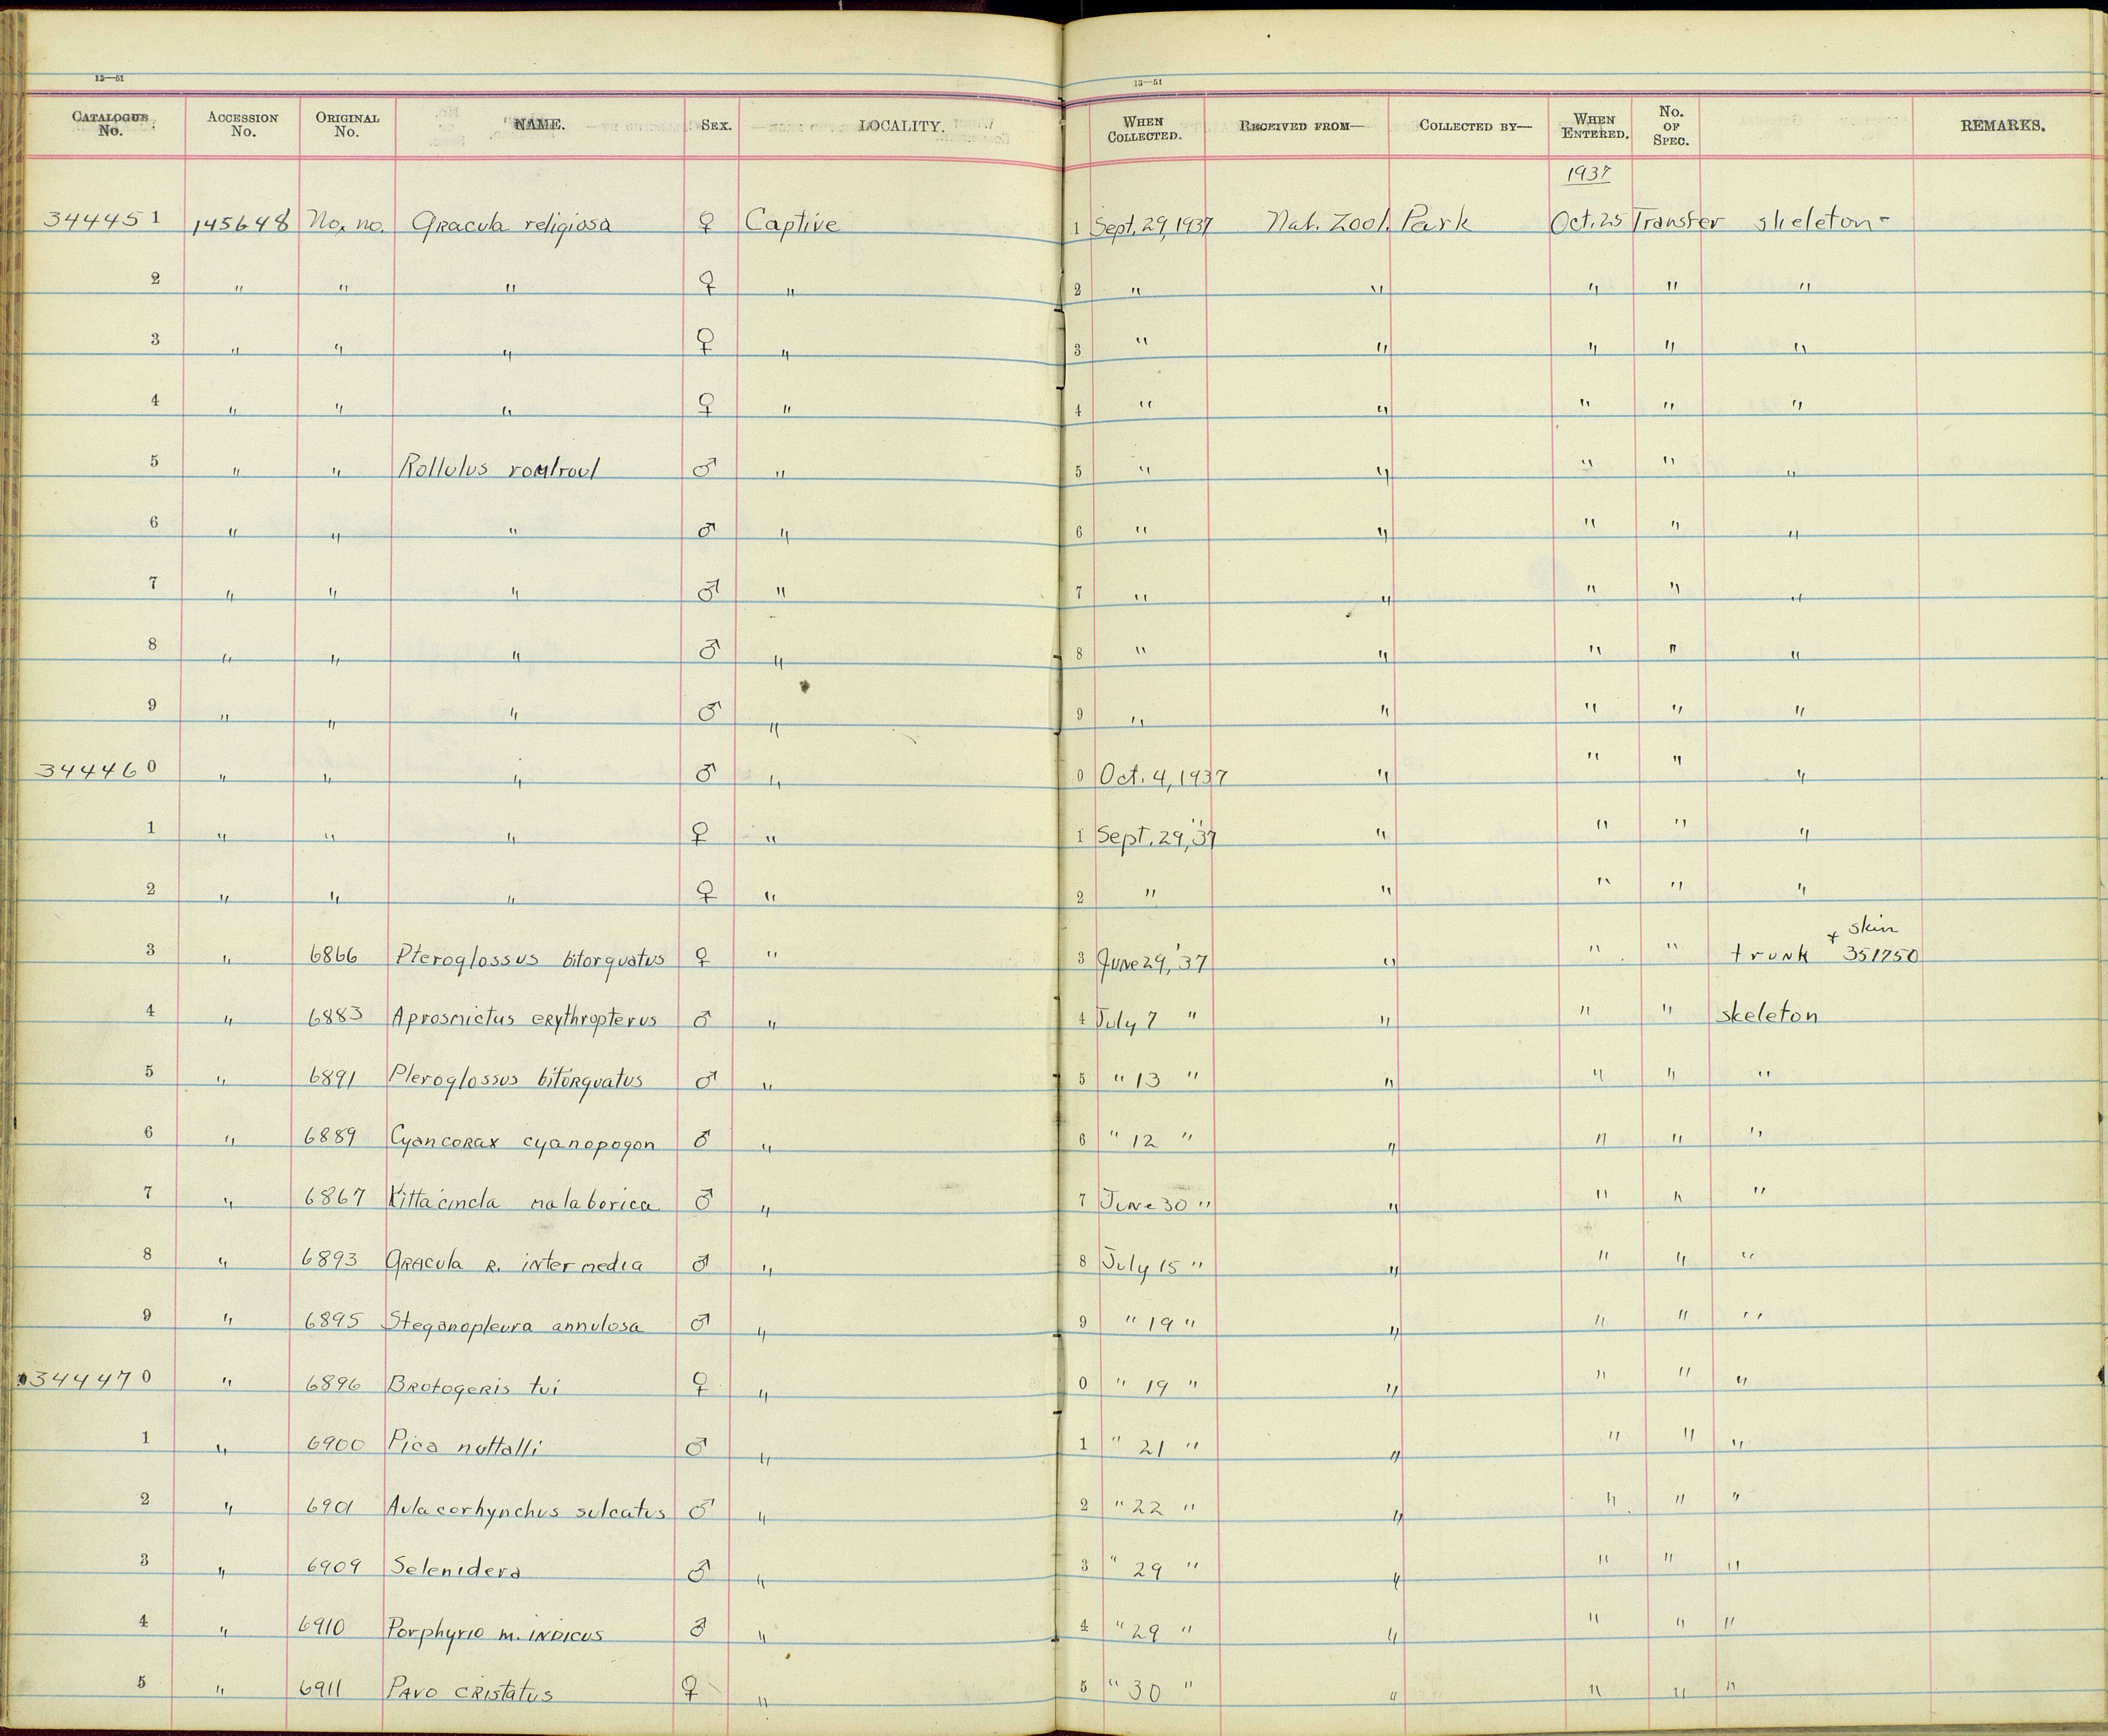 13—51 13—51
CATALOGUE No. ACCESSION No. ORIGINAL No. NAME. SEX. LOCALITY. WHEN COLLECTED. RECEIVED FROM— COLLECTED BY— WHEN ENTERED. No. OF SPEC. REMARKS.
1937
344451 145648 No. no. Gracula religiosa ♀ Captive 1 Sept. 29, 1937 Nat. Zool. Park Oct. 25 Transfer skeleton -
2 " " " ♀ " 2 " " " " "
3 " " " ♀ " 3 " " " " "
4 " " " ♀ " 4 " " " " "
5 " " Rollulus roulroul ♂ " 5 " " " " "
6 " " " ♂ " 6 " " " " "
7 " " " ♂ " 7 " " " " "
8 " " " ♂ " 8 " " " " "
9 " " " ♂ " 9 " " " " "
344460 " " " ♂ " 0 Oct. 4, 1937 " " " "
1 " " " ♀ " 1 Sept. 29, '37 " " " "
2 " " " ♀ " 2 " " " " "
3 " 6866 Pteroglossus bitorquatus ♀ " 3 June 29, '37 " " " trunk + skin 351750
4 " 6883 Aprosmictus erythropterus ♂ " 4 July 7 " " " " skeleton
5 " 6891 Pteroglossus bitorquatus ♂ " 5 " 13 " " " " "
6 " 6889 Cyancorax cyanopogon ♂ " 6 " 12 " " " " "
7 " 6867 Kittacincla malaborica ♂ " 7 June 30 " " " " "
8 " 6893 Gracula R. intermedia ♂ " 8 July 15 " " " " "
9 " 6895 Steganopleura annulosa ♂ " 9 " 19 " " " " "
344470 " 6896 Brotogeris tui ♀ " 0 " 19 " " " " "
1 " 6900 Pica nuttalli ♂ " 1 " 21 " " " " "
2 " 6901 Aulacorhynchus sulcatus ♂ " 2 " 22 " " " " "
3 " 6909 Selenidera ♂ " 3 " 29 " " " " "
4 " 6910 Porphyrio m. indicus ♂ " 4 " 29 " " " " "
5 " 6911 Pavo cristatus ♀ " 5 " 30 " " " " "